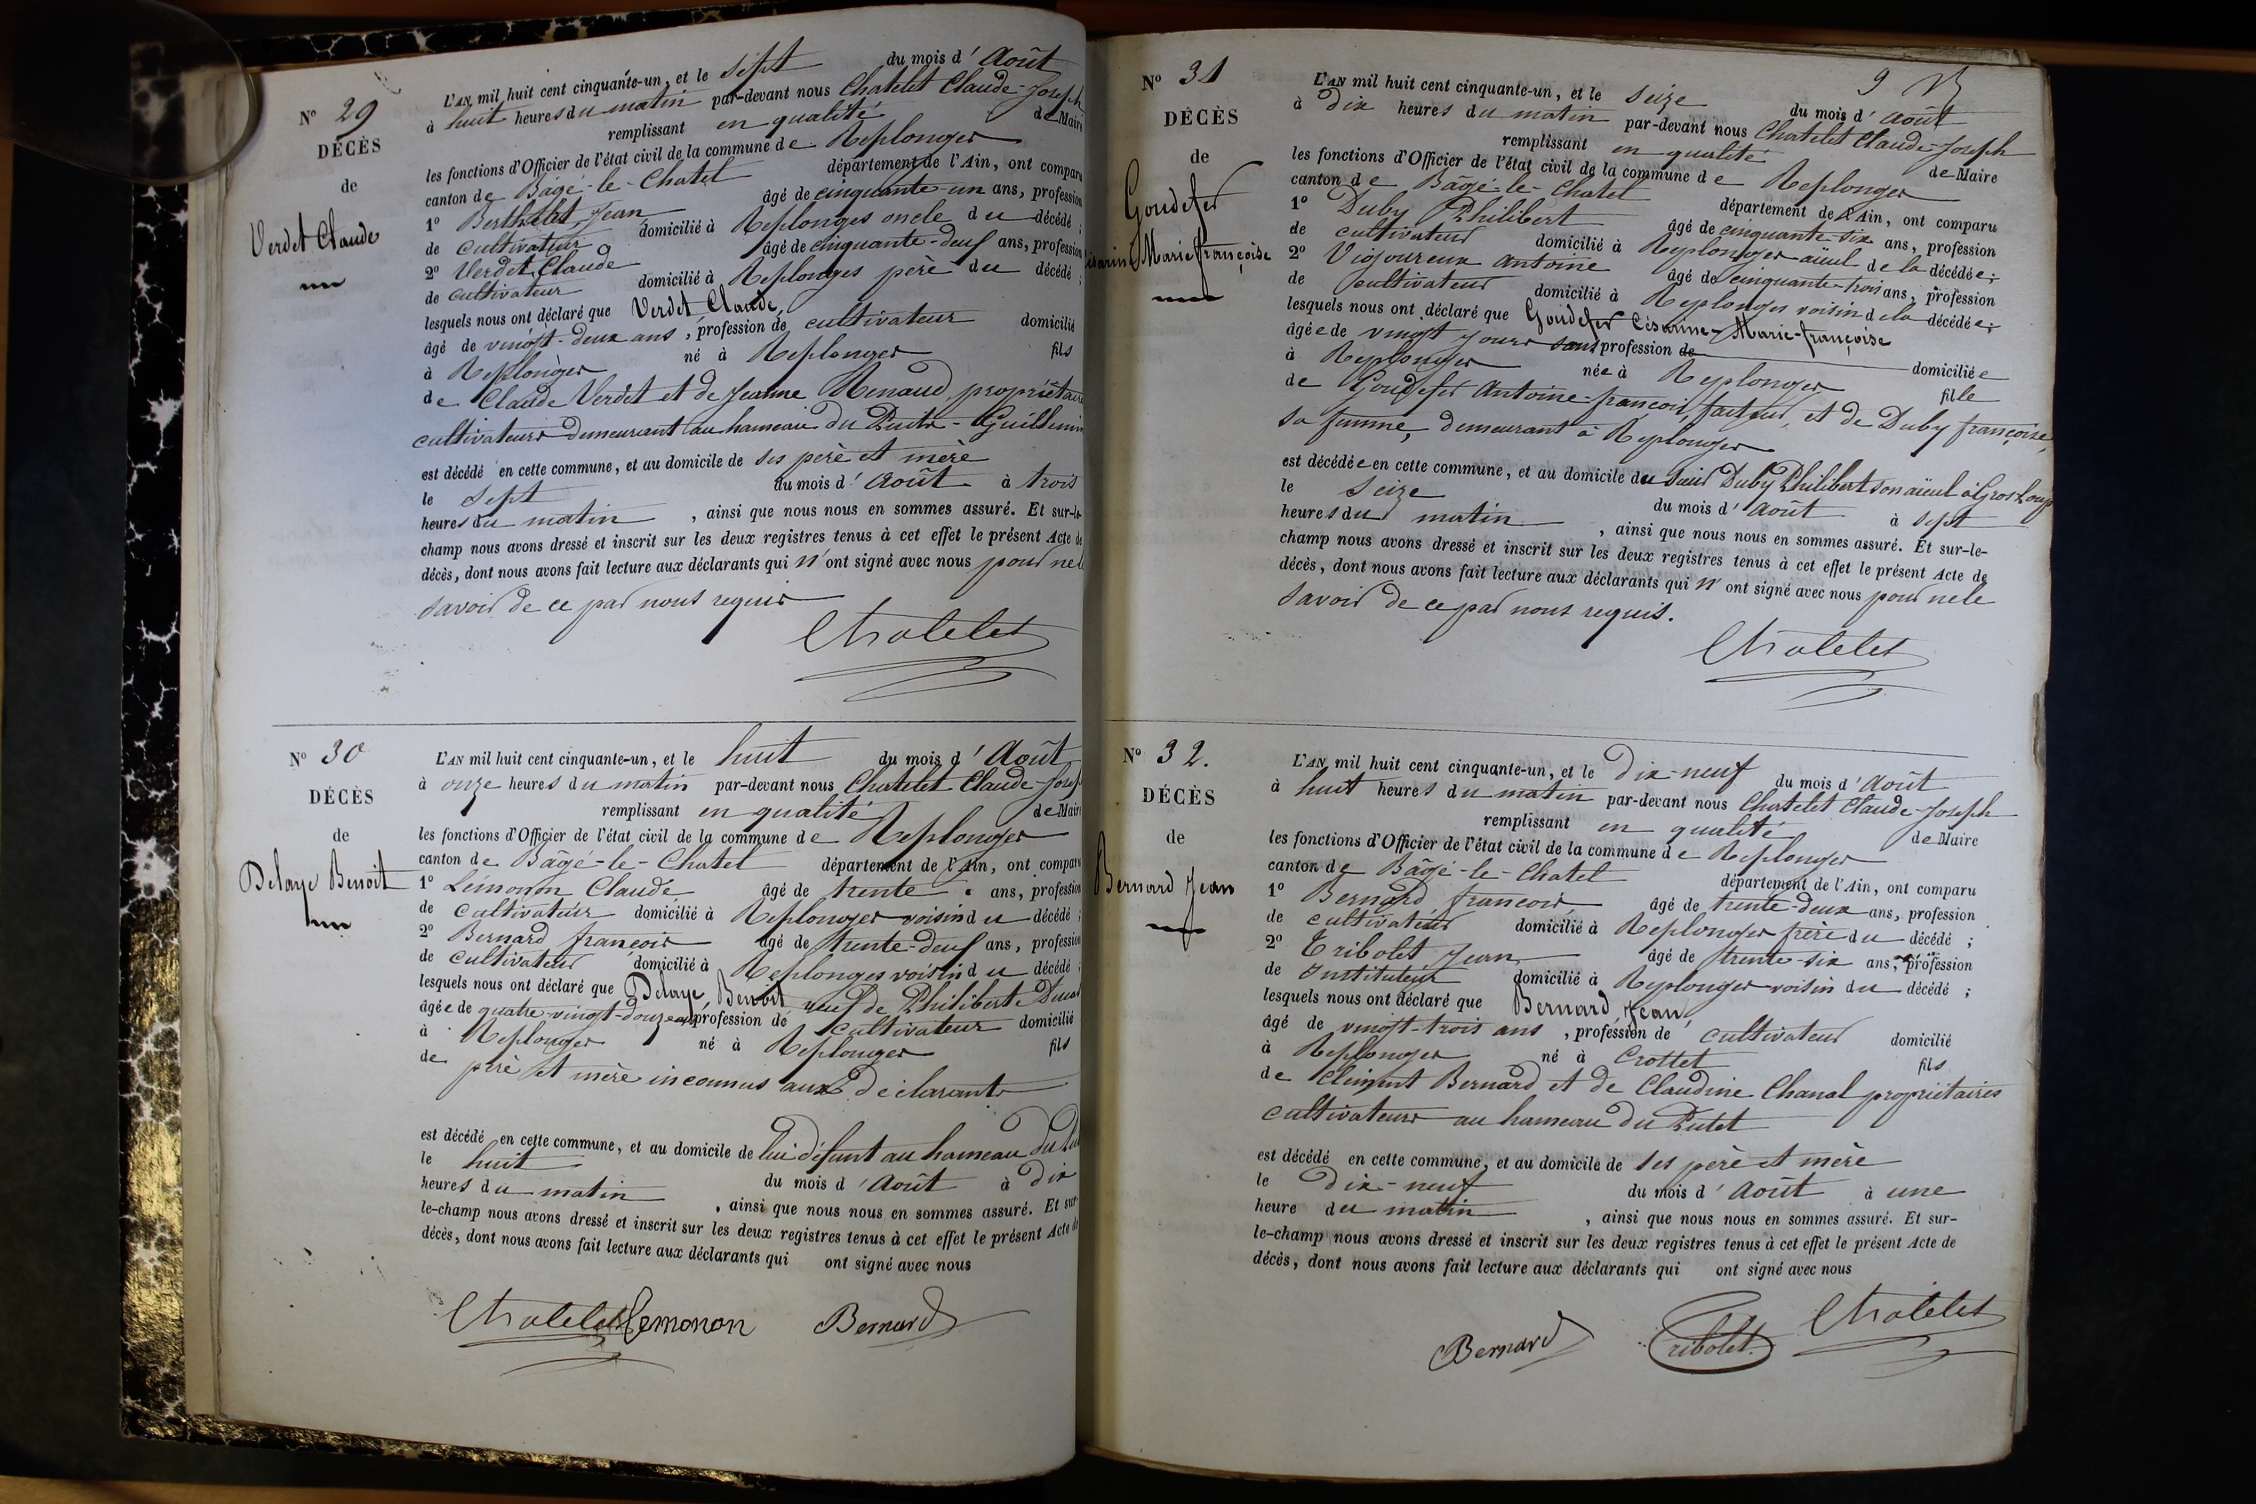 N° 29
DÉCÈS
de
Verdet Claude
L'AN mil huit cent cinquante-un, et le sept du mois d'Août
à huit heures du matin par-devant nous Chatelet Claude-Joseph
remplissant en qualité de Maire
les fonctions d'Officier de l'état civil de la commune de Replonges
canton de Bâgé-le-Chatel département de l'Ain, ont comparu
1° Berthelet Jean âgé de cinquante-un ans, profession
de cultivateur domicilié à Replonges oncle du décédé ;
2° Verdet Claude âgé de cinquante-deux ans, profession
de cultivateur domicilié à Replonges père du décédé ;
lesquels nous ont déclaré que Verdet Claude
âgé de vingt-deux ans, profession de cultivateur domicilié
à Replonges né à Replonges fils
de Claude Verdet et de Jeanne Renaud, propriétaires
cultivateurs demeurant au hameau du Puits-Guillemin
est décédé en cette commune, et au domicile de ses père et mère
le sept du mois d'Août à trois
heures du matin, ainsi que nous nous en sommes assuré. Et sur-le-
champ nous avons dressé et inscrit sur les deux registres tenus à cet effet le présent Acte de
décès, dont nous avons fait lecture aux déclarants qui n'ont signé avec nous pour ne le
savoir de ce par nous requis
Chatelet
N° 30
DÉCÈS
de
Delaye Benoit
L'AN mil huit cent cinquante-un, et le huit du mois d'Août
à onze heures du matin par-devant nous Chatelet Claude-Joseph
remplissant en qualité de Maire
les fonctions d'Officier de l'état civil de la commune de Replonges
canton de Bâgé-le-Chatel département de l'Ain, ont comparu
1° Lémonon Claude âgé de trente ans, profession
de cultivateur domicilié à Replonges voisin du décédé ;
2° Bernard françois âgé de trente-deux ans, profession
de cultivateur domicilié à Replonges voisin du décédé ;
lesquels nous ont déclaré que Delaye Benoit veuf de Philiberte
âgée de quatre-vingt-douze ans, profession de cultivateur domicilié
à Replonges né à Replonges fils
de père et mère inconnus aux déclarants
est décédé en cette commune, et au domicile de lui défunt au hameau du
le huit du mois d'Août à dix
heures du matin, ainsi que nous nous en sommes assuré. Et sur-
le-champ nous avons dressé et inscrit sur les deux registres tenus à cet effet le présent Acte de
décès, dont nous avons fait lecture aux déclarants qui ont signé avec nous
Chatelet Lemonon Bernard
9
N° 31
DÉCÈS
de
Goudefer
Césarine Marie françoise
L'AN mil huit cent cinquante-un, et le seize du mois d'Août
à dix heures du matin par-devant nous Chatelet Claude-Joseph
remplissant en qualité de Maire
les fonctions d'Officier de l'état civil de la commune de Replonges
canton de Bâgé-le-Chatel département de l'Ain, ont comparu
1° Duby Philibert âgé de cinquante-six ans, profession
de cultivateur domicilié à Replonges aieul de la décédée ;
2° Vigoureux Antoine âgé de cinquante-trois ans, profession
de cultivateur domicilié à Replonges voisin de la décédée ;
lesquels nous ont déclaré que Goudefer Césarine-Marie-françoise
âgée de vingt jours sans profession de domiciliée
à Replonges née à Replonges fille
de Goudefer Antoine-françois, facteur, et de Duby françoise,
sa femme, demeurant à Replonges
est décédée en cette commune, et au domicile du sieur Duby Philibert son aïeul à
le seize du mois d'Août à sept
heures du matin, ainsi que nous nous en sommes assuré. Et sur-le-
champ nous avons dressé et inscrit sur les deux registres tenus à cet effet le présent Acte de
décès, dont nous avons fait lecture aux déclarants qui n'ont signé avec nous pour ne le
savoir de ce par nous requis.
Chatelet
N° 32.
DÉCÈS
de
Bernard Jean
L'AN mil huit cent cinquante-un, et le dix-neuf du mois d'Août
à huit heures du matin par-devant nous Chatelet Claude-Joseph
remplissant en qualité de Maire
les fonctions d'Officier de l'état civil de la commune de Replonges
canton de Bâgé-le-Chatel département de l'Ain, ont comparu
1° Bernard françois âgé de trente-deux ans, profession
de cultivateur domicilié à Replonges frère du décédé ;
2° Tribolet Jean âgé de trente-six ans, profession
de Instituteur domicilié à Replonges voisin du décédé ;
lesquels nous ont déclaré que Bernard Jean
âgé de vingt-trois ans, profession de cultivateur domicilié
à Replonges né à Crottet fils
de Clément Bernard et de Claudine Chanal propriétaires
cultivateurs au hameau du Putet
est décédé en cette commune, et au domicile de ses père et mère
le dix-neuf du mois d'Août à une
heure du matin, ainsi que nous nous en sommes assuré. Et sur-
le-champ nous avons dressé et inscrit sur les deux registres tenus à cet effet le présent Acte de
décès, dont nous avons fait lecture aux déclarants qui ont signé avec nous
Bernard Tribolet Chatelet